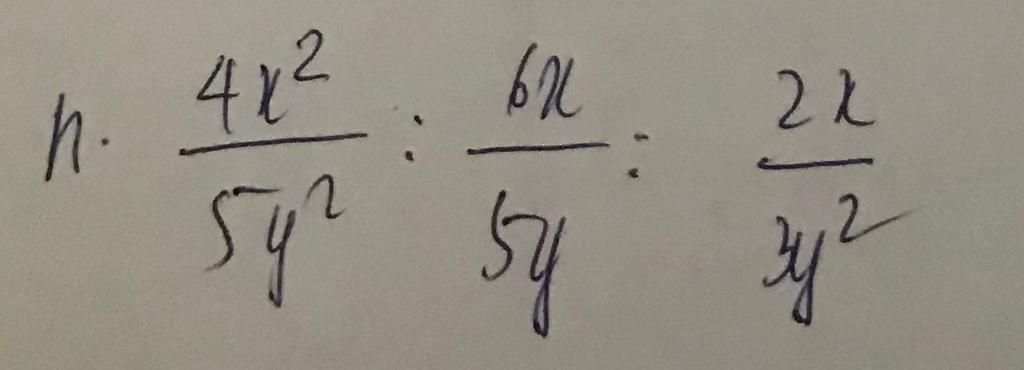 h. \frac{4x^2}{5y^2} : \frac{6x}{5y} : \frac{2x}{3y^2}